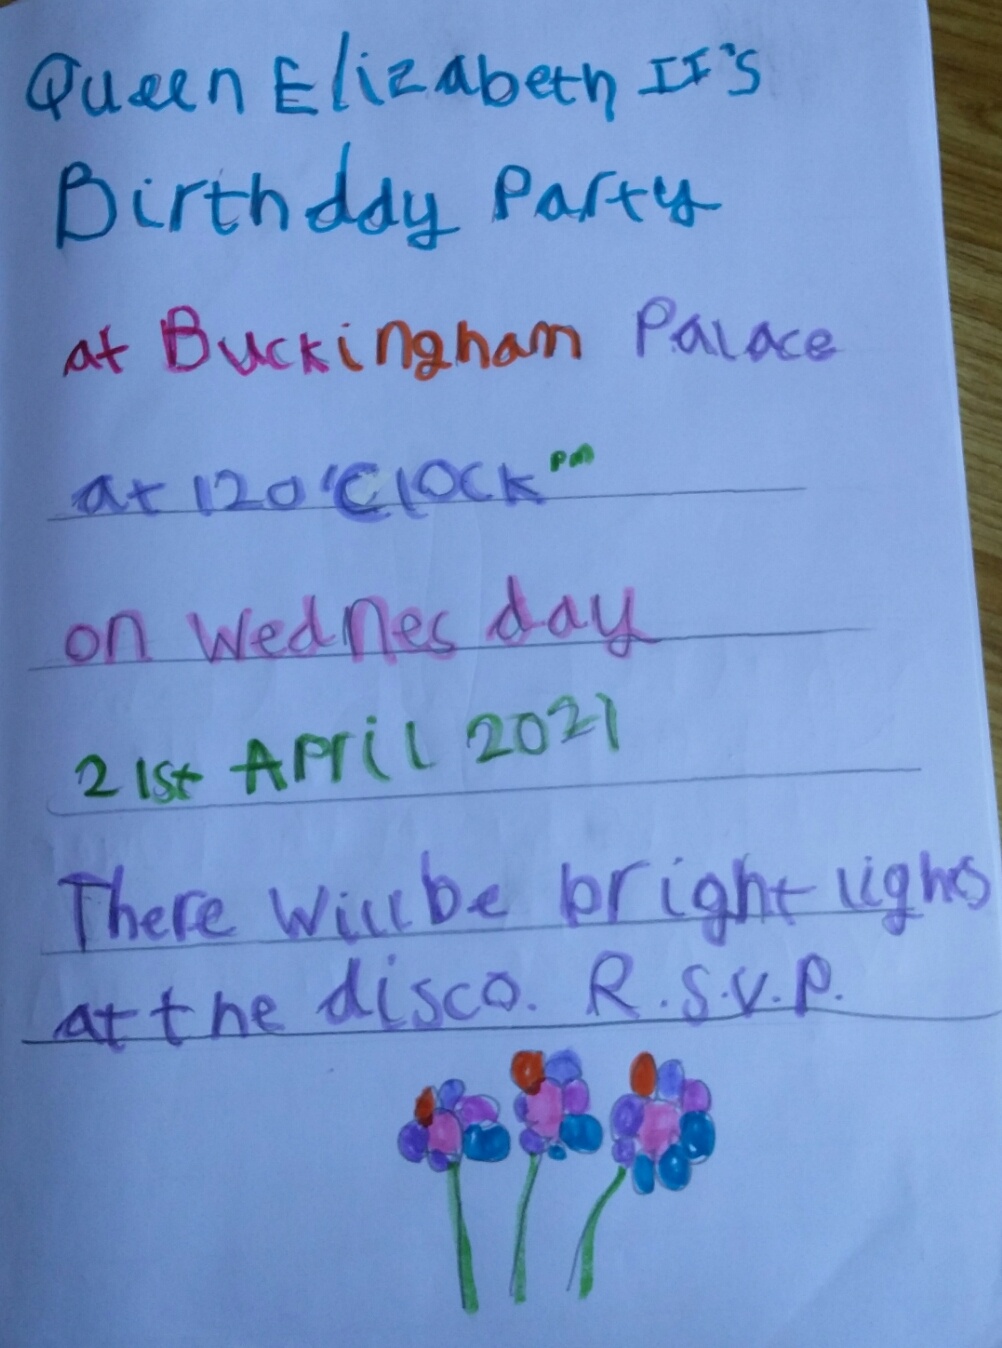 Queen Elizabeth II's
Birthday Party
at Buckingham Palace
at 12 o'Clock pm
on Wednesday
21st April 2021
There will be bright lights
at the disco. R.S.V.P.